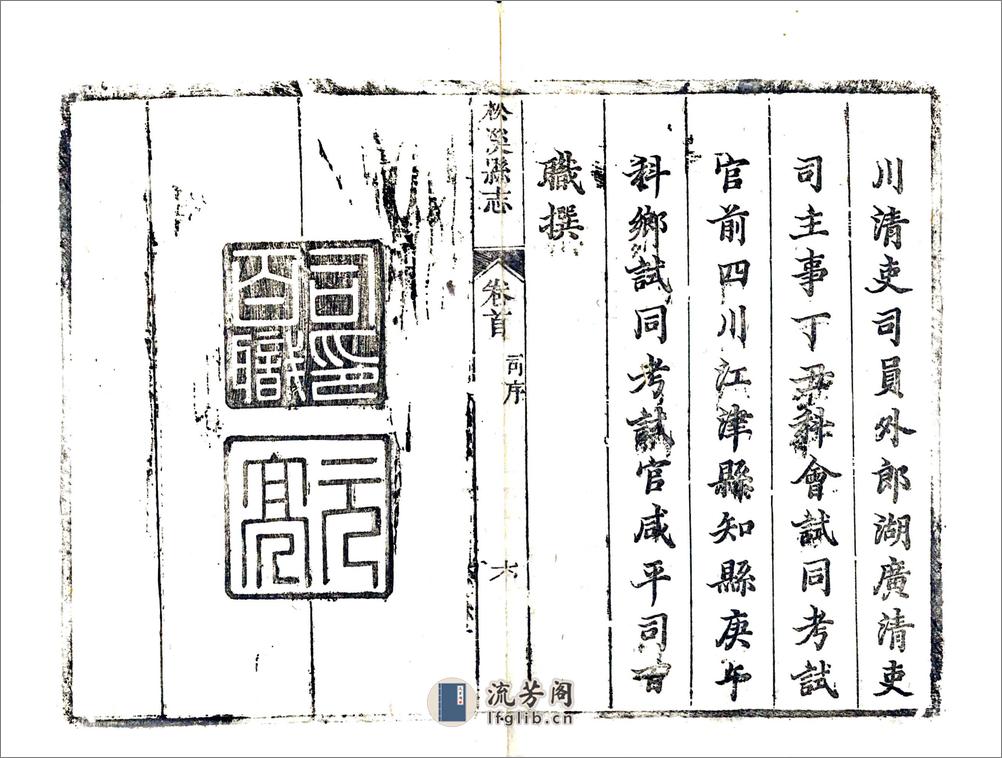 川清吏司員外郎湖廣清吏
司主事丁丑科會試同考試
官前四川江津縣知縣庚午
科鄉試同考試官咸平司百
職撰
松溪縣志
卷首
司序
六
司百職印
元亮
流芳阁
lfglib.cn